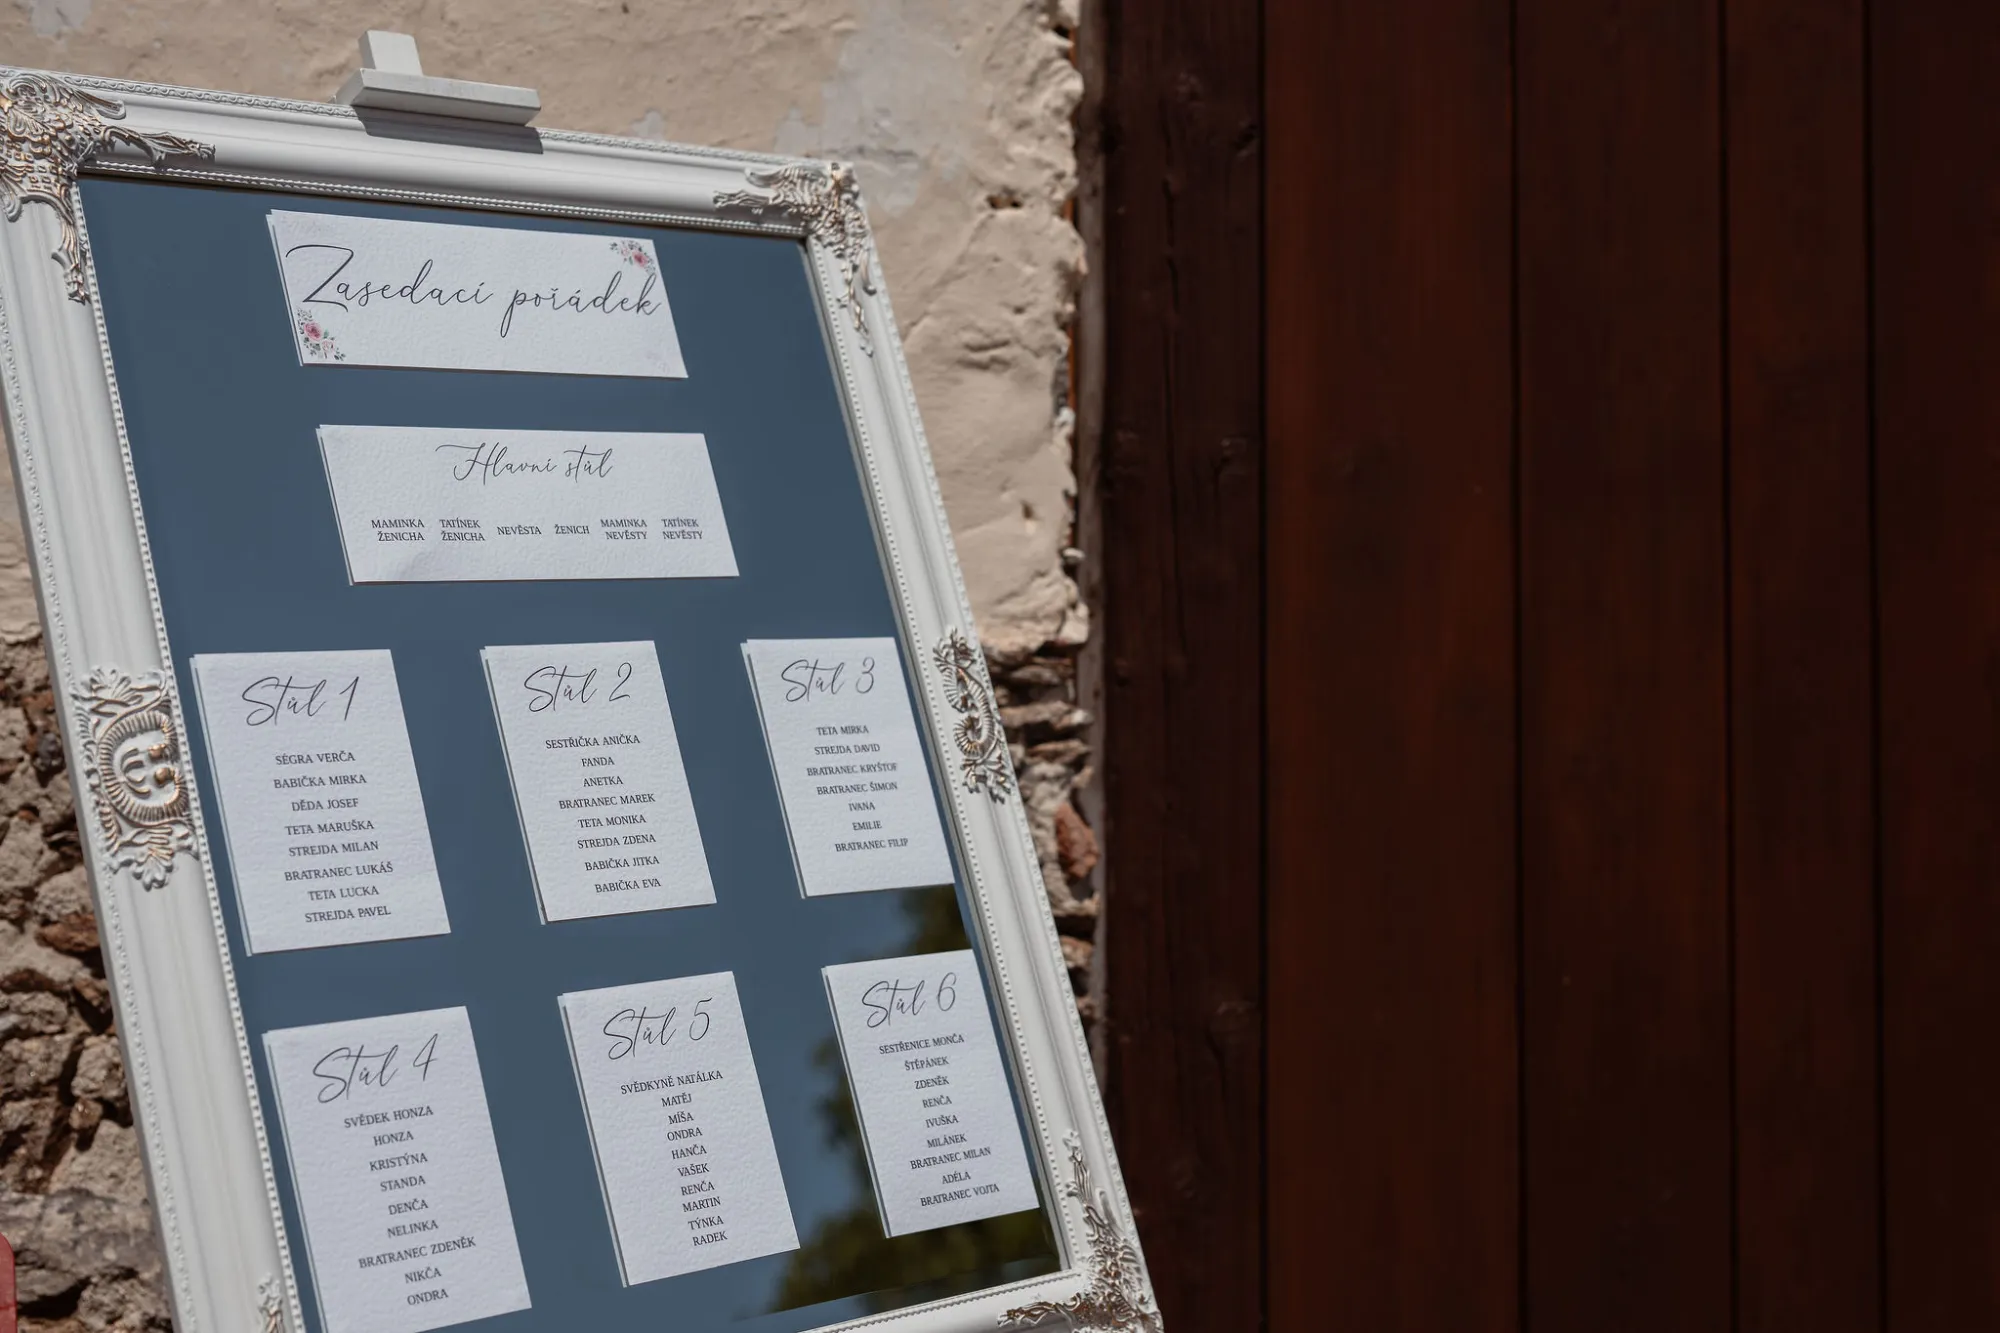 Zasedací pořádek
Hlavní stůl
MAMINKA ŽENICHA
TATÍNEK ŽENICHA
NEVĚSTA
ŽENICH
MAMINKA NEVĚSTY
TATÍNEK NEVĚSTY
Stůl 1
SÉGRA VERČA
BABIČKA MIRKA
DĚDA JOSEF
TETA MARUŠKA
STREJDA MILAN
BRATRANEC LUKÁŠ
TETA LUCKA
STREJDA PAVEL
Stůl 2
SESTŘIČKA ANIČKA
FANDA
ANETKA
BRATRANEC MAREK
TETA MONIKA
STREJDA ZDENA
BABIČKA JITKA
BABIČKA EVA
Stůl 3
TETA MIRKA
STREJDA DAVID
BRATRANEC KRYŠTOF
BRATRANEC ŠIMON
IVANA
EMILIE
BRATRANEC FILIP
Stůl 4
SVĚDEK HONZA
HONZA
KRISTÝNA
STANDA
DENČA
NELINKA
BRATRANEC ZDENĚK
NIKČA
ONDRA
Stůl 5
SVĚDKYNĚ NATÁLKA
MATĚJ
MÍŠA
ONDRA
HANČA
VAŠEK
RENČA
MARTIN
TÝNKA
RADEK
Stůl 6
SESTŘENICE MONČA
ŠTĚPÁNEK
ZDENĚK
RENČA
IVUŠKA
MILÁNEK
BRATRANEC MILAN
ADÉLA
BRATRANEC VOJTA